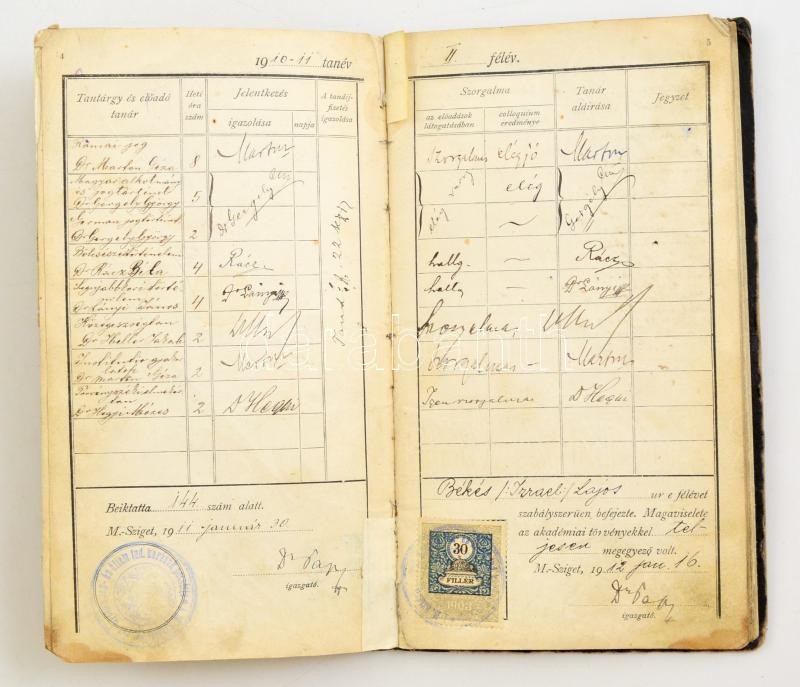 4
1910-11 tanév
Tantárgy és előadó tanár
Heti óra szám
Jelentkezés
igazolása
napja
A tandíj-fizetés igazolása
Római jog
Dr Marton Géza 8 Marton
Magyar alkotmány
és jogtörténet
Dr Gergely György 5 Dr Gergely
German jogtörténet
Dr Gergely György 2
Bölcsészettörténelem
Dr Rácz Béla 4 Rácz
Legujabbkori törté
nelem
Dr Lányi János 4 Dr Lányi
Közegészségtan
Dr Heller Jakab 2
Institutio gyakor
latok
Dr Marton Géza 2 Marton
Dr Hegyi Mózes 2 D Hegyi
Beiktatta 144 szám alatt.
M.-Sziget, 1911 január 30
Dr Papp
igazgató.
5
II félév.
Szorgalma
az előadások látogatásában
colloquium eredménye
Tanár aláírása
Jegyzet
Szorgalmas elég jó Marton
elég
Gergely
hallg. — Rácz
hallg — Dr Lányi
Szorgalmas
Szorgalmas — Marton
Igen szorgalmas D Hegyi
Békés /:Izrael:/ Lajos ur e félévet
szabályszerüen befejezte. Magaviselete
az akadémiai törvényekkel tel-
jesen megegyező volt.
M.-Sziget, 1912 jan. 16.
Dr Papp
igazgató.
30
FILLÉR
1903
darabanth